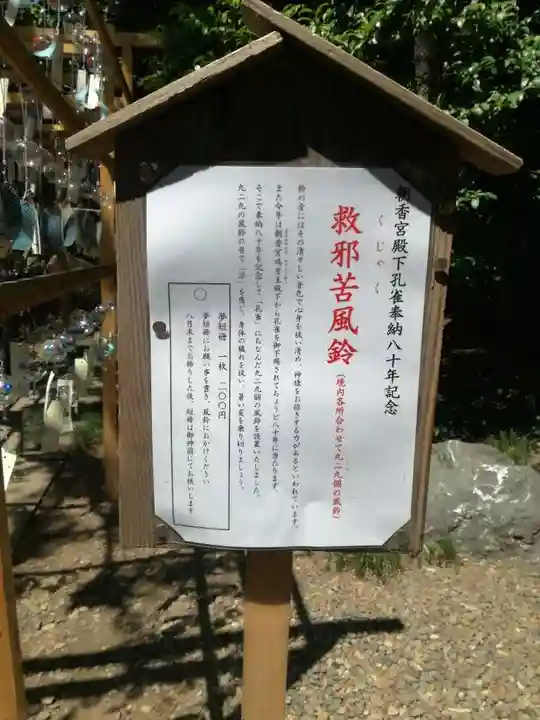 朝香宮殿下孔雀奉納八十年記念
くじゃく
救邪苦風鈴
(境内各所合わせて九二九個の風鈴)
鈴の音にはその清々しい音色で心身を祓い清め、神様をお招きする力があるといわれています。
また今年は朝香宮鳩彦王殿下から孔雀を御下賜されてちょうど八十年に当たります。
そこで奉納八十年を記念して「孔雀」にちなんだ九二九個の風鈴を設置いたしました。
九二九の風鈴の音で「涼」を感じ、身体の穢れを祓い、暑い夏を乗り切りましょう。
夢短冊 一枚 二〇〇円
夢短冊にお願い事を書き、風鈴におかけください
八月末までお飾りした後、短冊は御神前にてお祓いします